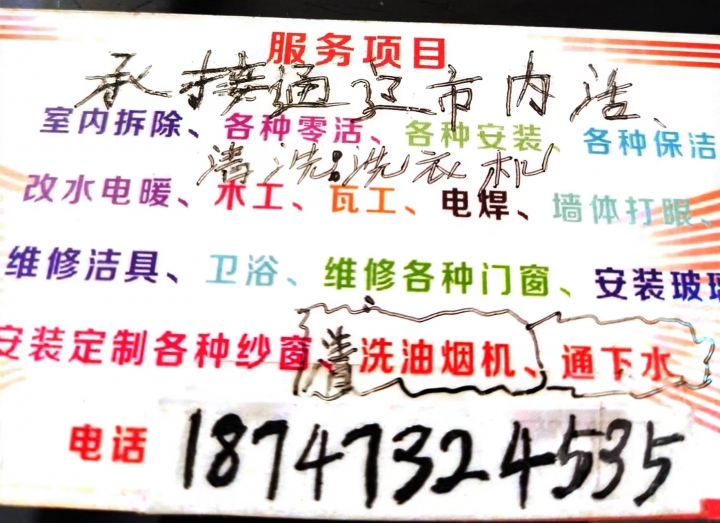 服务项目
承接通辽市内活、
室内拆除、各种零活、各种安装、各种保洁
清洗:洗衣机
改水电暖、木工、瓦工、电焊、墙体打眼、
维修洁具、卫浴、维修各种门窗、安装玻璃
安装定制各种纱窗、清洗油烟机、通下水
电话 18747324535